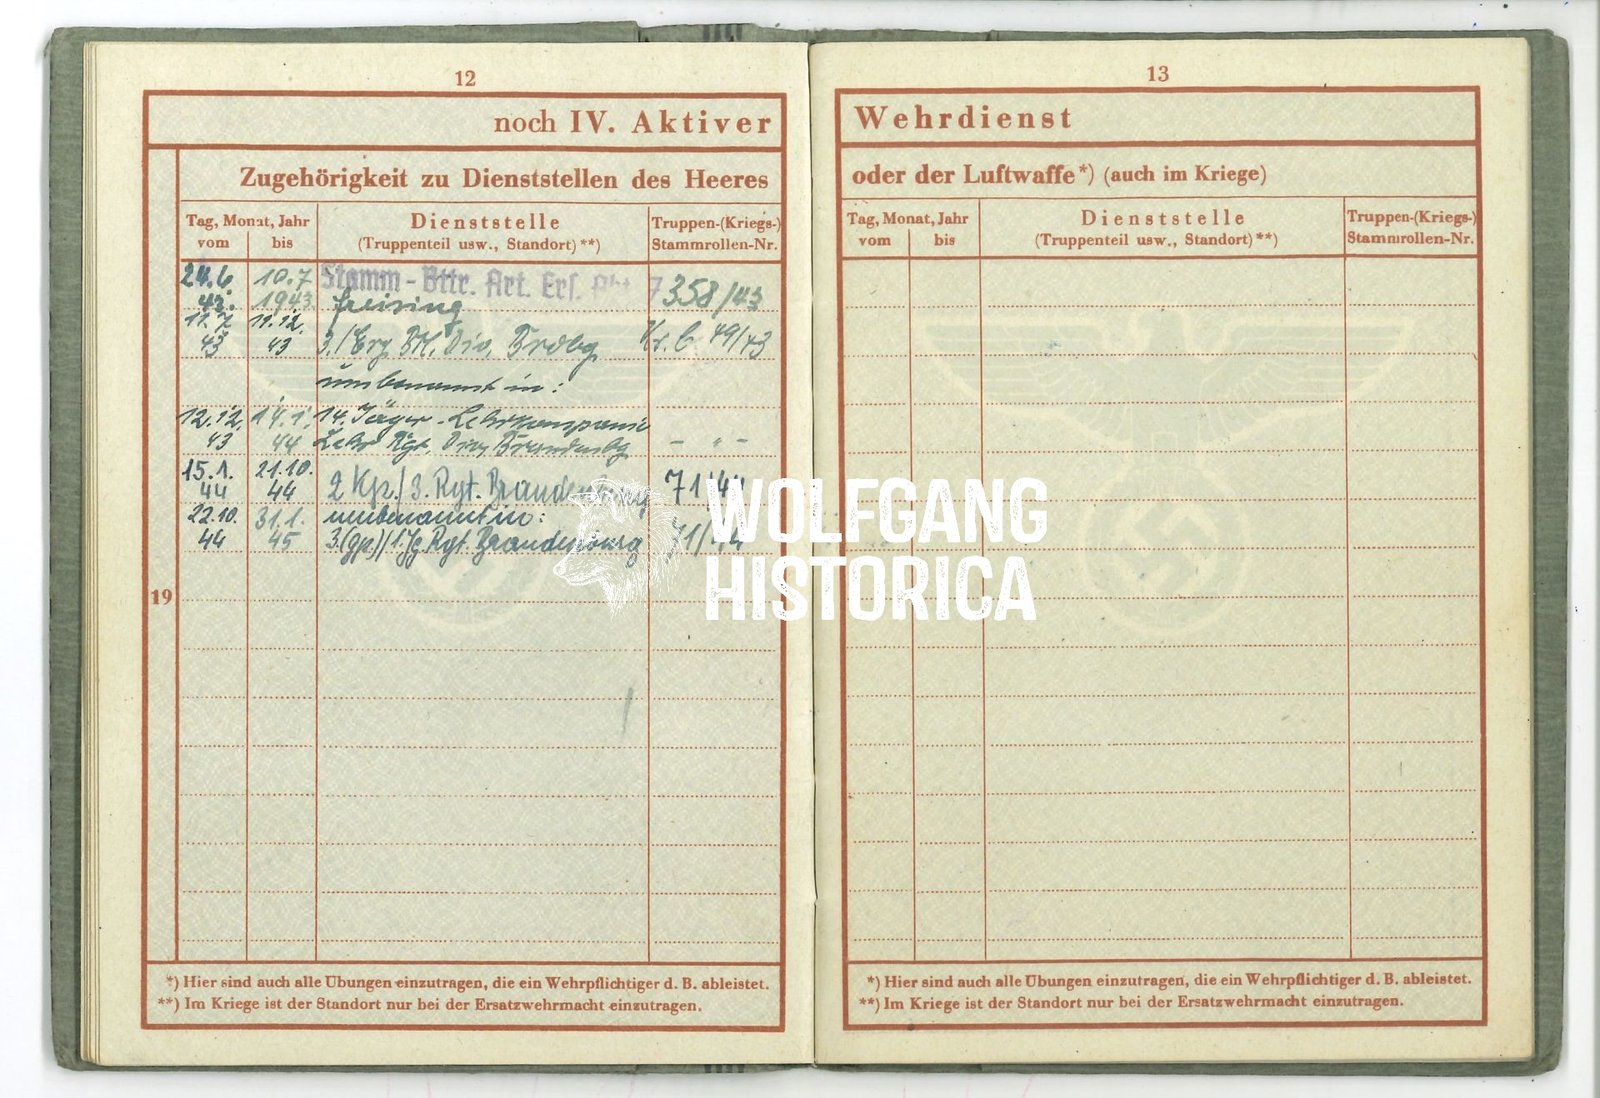 12
noch IV. Aktiver
Zugehörigkeit zu Dienststellen des Heeres
Tag, Monat, Jahr
vom bis
Dienststelle
(Truppenteil usw., Standort)**)
Truppen-(Kriegs-)
Stammrollen-Nr.
24.6 10.7 Stamm-Bttr. Art. Ers. Abt. 7 358/43
43. 1943 Freising
11.7. 11.12.
43 43 3./Erg. Btl. Div. Brdbg Kr. 6 49/43
umbenannt in:
12.12. 14.1. 14. Jäger-Lehrkompanie
43 44 Lehr Rgt. Div. Brandenbg - " -
15.1. 21.10.
44 44 2 Kp./3. Rgt. Brandenburg 71/44
22.10. 31.1. umbenannt in:
44 45 3.(gp)/1. Jg Rgt. Brandenburg 71/44
19
*) Hier sind auch alle Übungen einzutragen, die ein Wehrpflichtiger d. B. ableistet.
**) Im Kriege ist der Standort nur bei der Ersatzwehrmacht einzutragen.
13
Wehrdienst
oder der Luftwaffe*) (auch im Kriege)
Tag, Monat, Jahr
vom bis
Dienststelle
(Truppenteil usw., Standort)**)
Truppen-(Kriegs-)
Stammrollen-Nr.
*) Hier sind auch alle Übungen einzutragen, die ein Wehrpflichtiger d. B. ableistet.
**) Im Kriege ist der Standort nur bei der Ersatzwehrmacht einzutragen.
WOLFGANG
HISTORICA